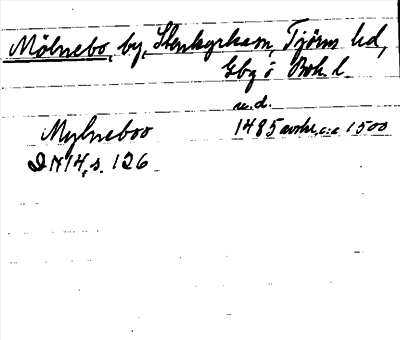 Mölnebo, by, Stenkyrka sn, Tjörns hd,
Gbg o Boh. l.
u.d.
Mylneboo 1485 avskr. c:a 1500
DN 14, s. 126